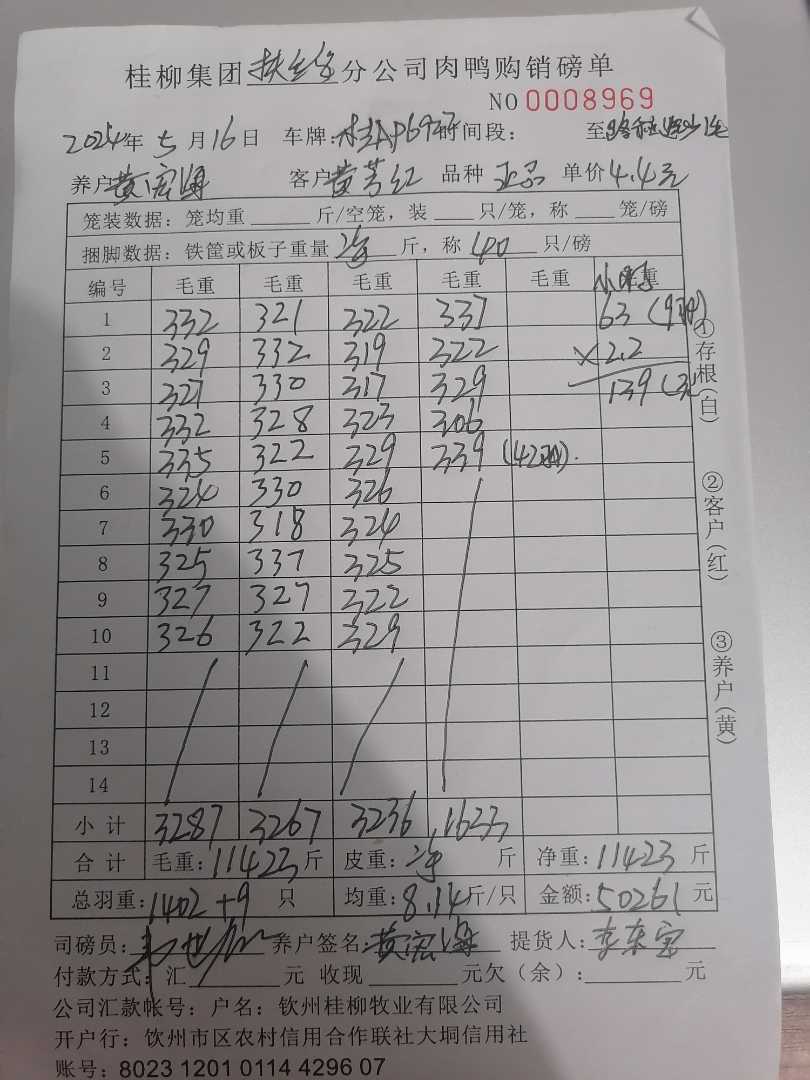 桂柳集团扶绥分公司肉鸭购销磅单
NO 0008969
2024年5月16日 车牌: 时间段: 至
养户 黄 海 客户 黄芳红 品种 正品 单价4.4元
笼装数据: 笼均重 斤/空笼, 装 只/笼, 称 笼/磅
捆脚数据: 铁筐或板子重量 净 斤, 称 40 只/磅
编号 毛重 毛重 毛重 毛重 毛重 毛重
1 332 321 322 337 63 (9只)
2 329 332 319 322 ×2.2
3 327 330 317 329 139 (元)
4 332 328 323 306
5 335 322 329 339 (42只).
6 324 330 326
7 330 318 324
8 325 337 325
9 327 327 322
10 326 322 329
11
12
13
14
小计 3287 3267 3236 1633
合计 毛重: 11423 斤 皮重: 净 斤 净重: 11423 斤
总羽重: 1402+9 只 均重: 8.14 斤/只 金额: 50261 元
司磅员: 养户签名: 黄 海 提货人: 李东宝
付款方式: 汇 元 收现 元欠(余): 元
公司汇款帐号: 户名: 钦州桂柳牧业有限公司
开户行: 钦州市区农村信用合作联社大垌信用社
账号: 8023 1201 0114 4296 07
①存根(白)
②客户(红)
③养户(黄)